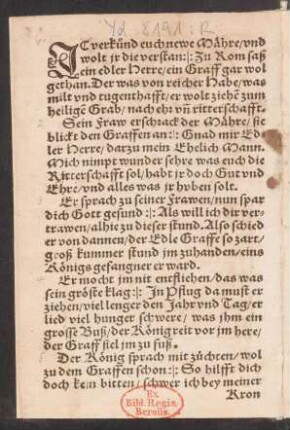 Yd 8191 : R
IC verkünd euch newe Mähre/vnd
wolt jr die verstan:|: Zu Rom saß
ein edler Herre/ein Graff gar wol
gethan. Der was von reicher Habe/was
milt vnd tugenthafft/er wolt ziehē zum
heiligē Grab/nach ehr vn̄ ritterschafft.
Sein Fraw erschrack der Mähre/sie
blickt den Graffen an:|: Gnad mir Ed-
ler Herre/darzu mein Ehelich Mann.
Mich nimpt wunder sehre was euch die
Ritterschafft sol/habt jr doch Gut vnd
Ehre/vnd alles was jr huben solt.
Er sprach zu seiner Frawen/nun spar
dich Gott gesund :|: Als will ich dir ver-
trawen/alhie zu dieser stund. Also schied
er von dannen/der Edle Graffe so zart/
groß kummer stund jm zuhanden/eins
Königs gefangner er ward.
Er mocht jm nit entfliehen/das was
sein gröste klag:|: In Pflug da must er
ziehen/viel lenger den Jahr vnd Tag/er
lied viel hunger schwere/ was jhm ein
grosse Buß/der König reit vor jm here/
der Graff fiel jm zu fuß.
Der König sprach mit züchten/wol
zu dem Graffen schon:|: So hilfft dich
doch kein bitten/schwer ich bey meiner
Kron
Ex
Bibl. Regia
Berolin.